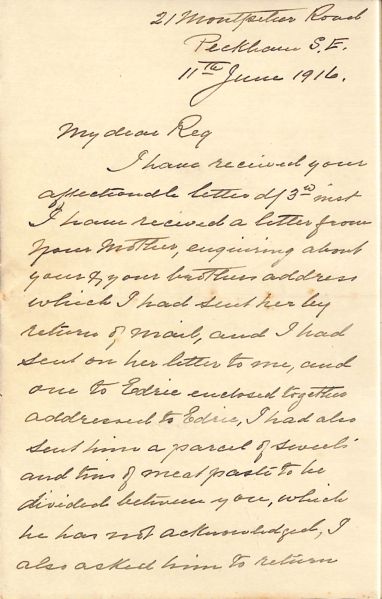 21 Montpelier Road
Peckham S.E.
11th June 1916.
My dear Reg
I have received your
affectionate letter d/ 3rd inst
I have recived a letter from
your Mother, enquiring about
your & your brothers address
which I had sent her by
return of mail, and I had
sent on her letter to me, and
one to Edric enclosed together
addressed to Edric, I had also
sent him a parcel of sweets
and tins of meat paste to be
divided between you, which
he has not acknowledged, I
also asked him to return